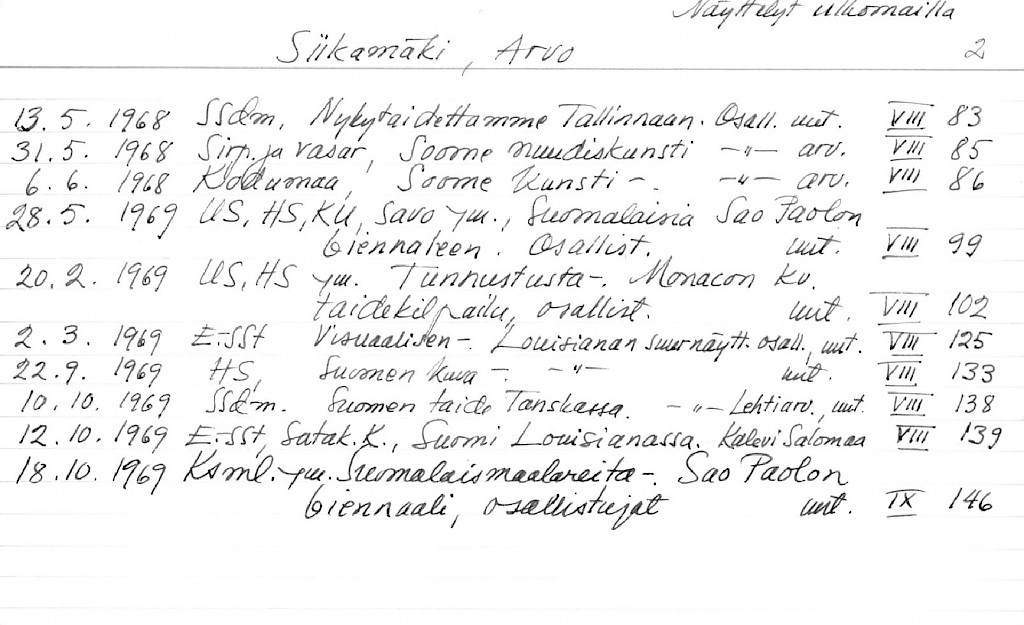 Näyttelyt ulkomailla
Siikamäki, Arvo 2
13. 5. 1968 SSdm, Nykytaidettamme Tallinnaan. Osall. uut. VIII 83
31. 5. 1968 Sirp. ja Vasar, Soome nuudiskunsti -"- arv. VIII 85
6. 6. 1968 Kodumaa, Soome Kunsti -. -"- arv. VIII 86
28. 5. 1969 US, HS, KU, Savo ym., Suomalaisia Sao Paolon
biennaleen. Osallist. uut. VIII 99
20. 2. 1969 US, HS ym. Tunnustusta -. Monacon kv.
taidekilpailu, osallist. uut. VIII 102
2. 3. 1969 E-SSt Visuaalisen -. Louisianan suurnäytt. osall., uut. VIII 125
22. 9. 1969 HS, Suomen kuva -. -"- uut. VIII 133
10. 10. 1969 SSdm. Suomen taide Tanskassa. -"- Lehtiarv., uut. VIII 138
12. 10. 1969 E-SSt, Satak. K., Suomi Louisianassa. Kalevi Salomaa VIII 139
18. 10. 1969 Ksml. ym. Suomalaismaalareita -. Sao Paolon
biennaali, osallistujat uut. IX 146